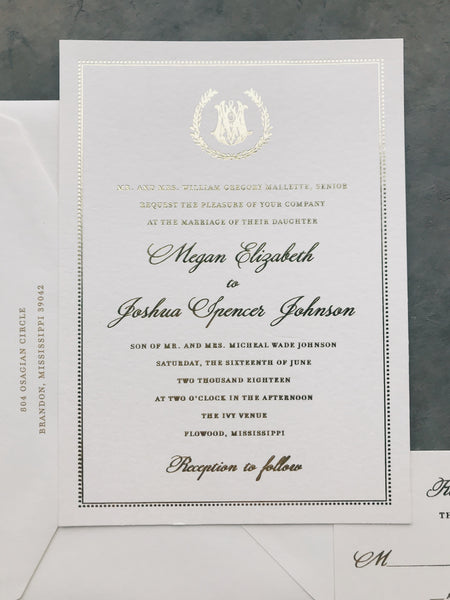 MR. AND MRS. WILLIAM GREGORY MALLETTE, SENIOR
REQUEST THE PLEASURE OF YOUR COMPANY
AT THE MARRIAGE OF THEIR DAUGHTER
Megan Elizabeth
to
Joshua Spencer Johnson
SON OF MR. AND MRS. MICHEAL WADE JOHNSON
SATURDAY, THE SIXTEENTH OF JUNE
TWO THOUSAND EIGHTEEN
AT TWO O'CLOCK IN THE AFTERNOON
THE IVY VENUE
FLOWOOD, MISSISSIPPI
Reception to follow
804 OSAGIAN CIRCLE
BRANDON, MISSISSIPPI 39042
M